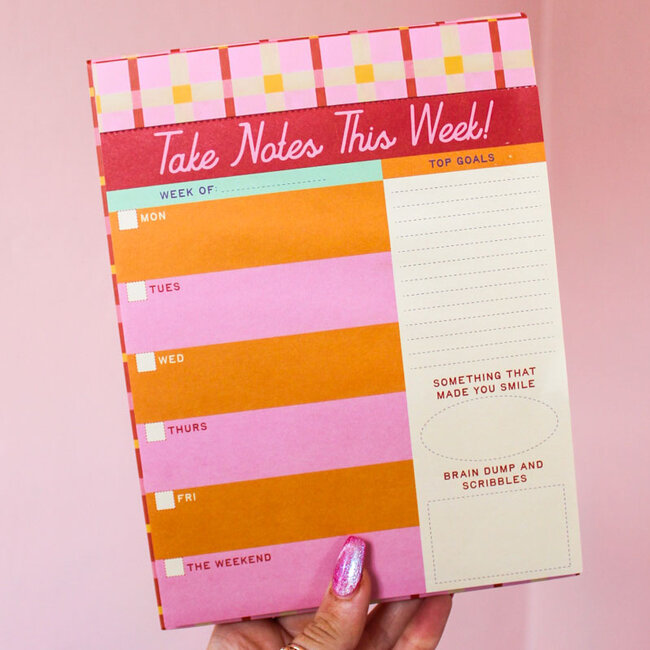 Take Notes This Week!
WEEK OF:
MON
TUES
WED
THURS
FRI
THE WEEKEND
TOP GOALS
SOMETHING THAT
MADE YOU SMILE
BRAIN DUMP AND
SCRIBBLES